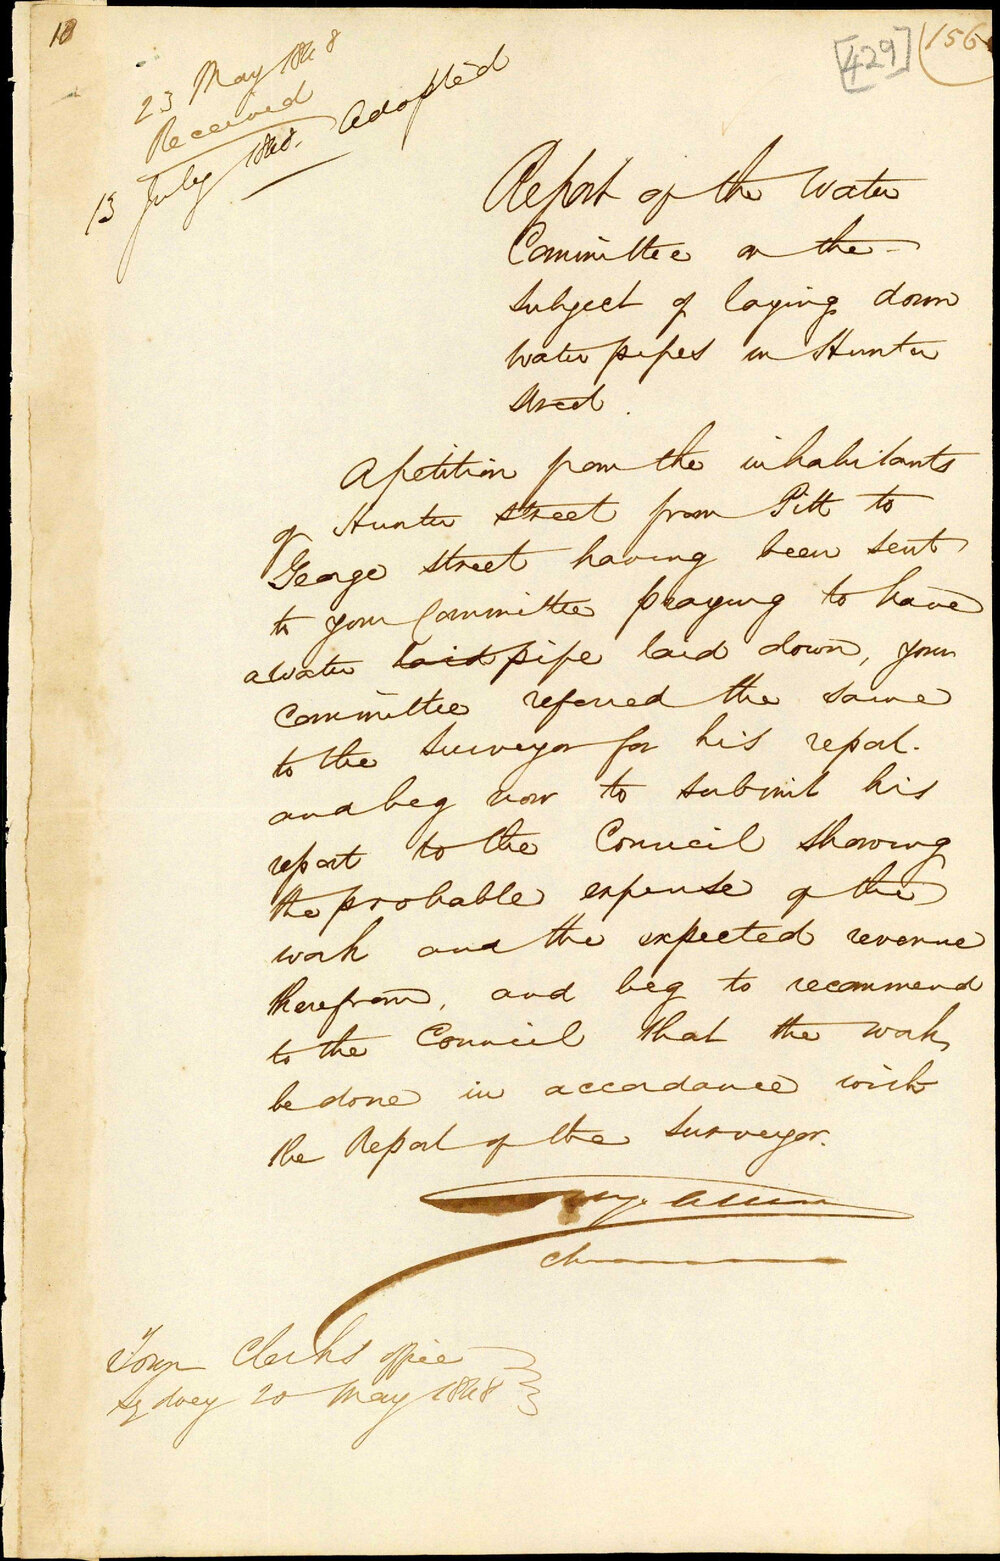 10
[429]
156
23 May 1848
Received
13 July 1848. Adopted
Report of the Water
Committee on the
subject of laying down
water pipes in Hunter
Street.
A petition from the inhabitants
of Hunter Street from Pitt to
George Street having been sent
to your Committee praying to have
a water laid pipe laid down, your
Committee referred the same
to the Surveyor for his report.
and beg now to submit his
report to the Council showing
the probable expense of the
work and the expected revenue
therefrom, and beg to recommend
to the Council that the work
be done in accordance with
the Report of the Surveyor.
Town Clerks office
Sydney 20 May 1848